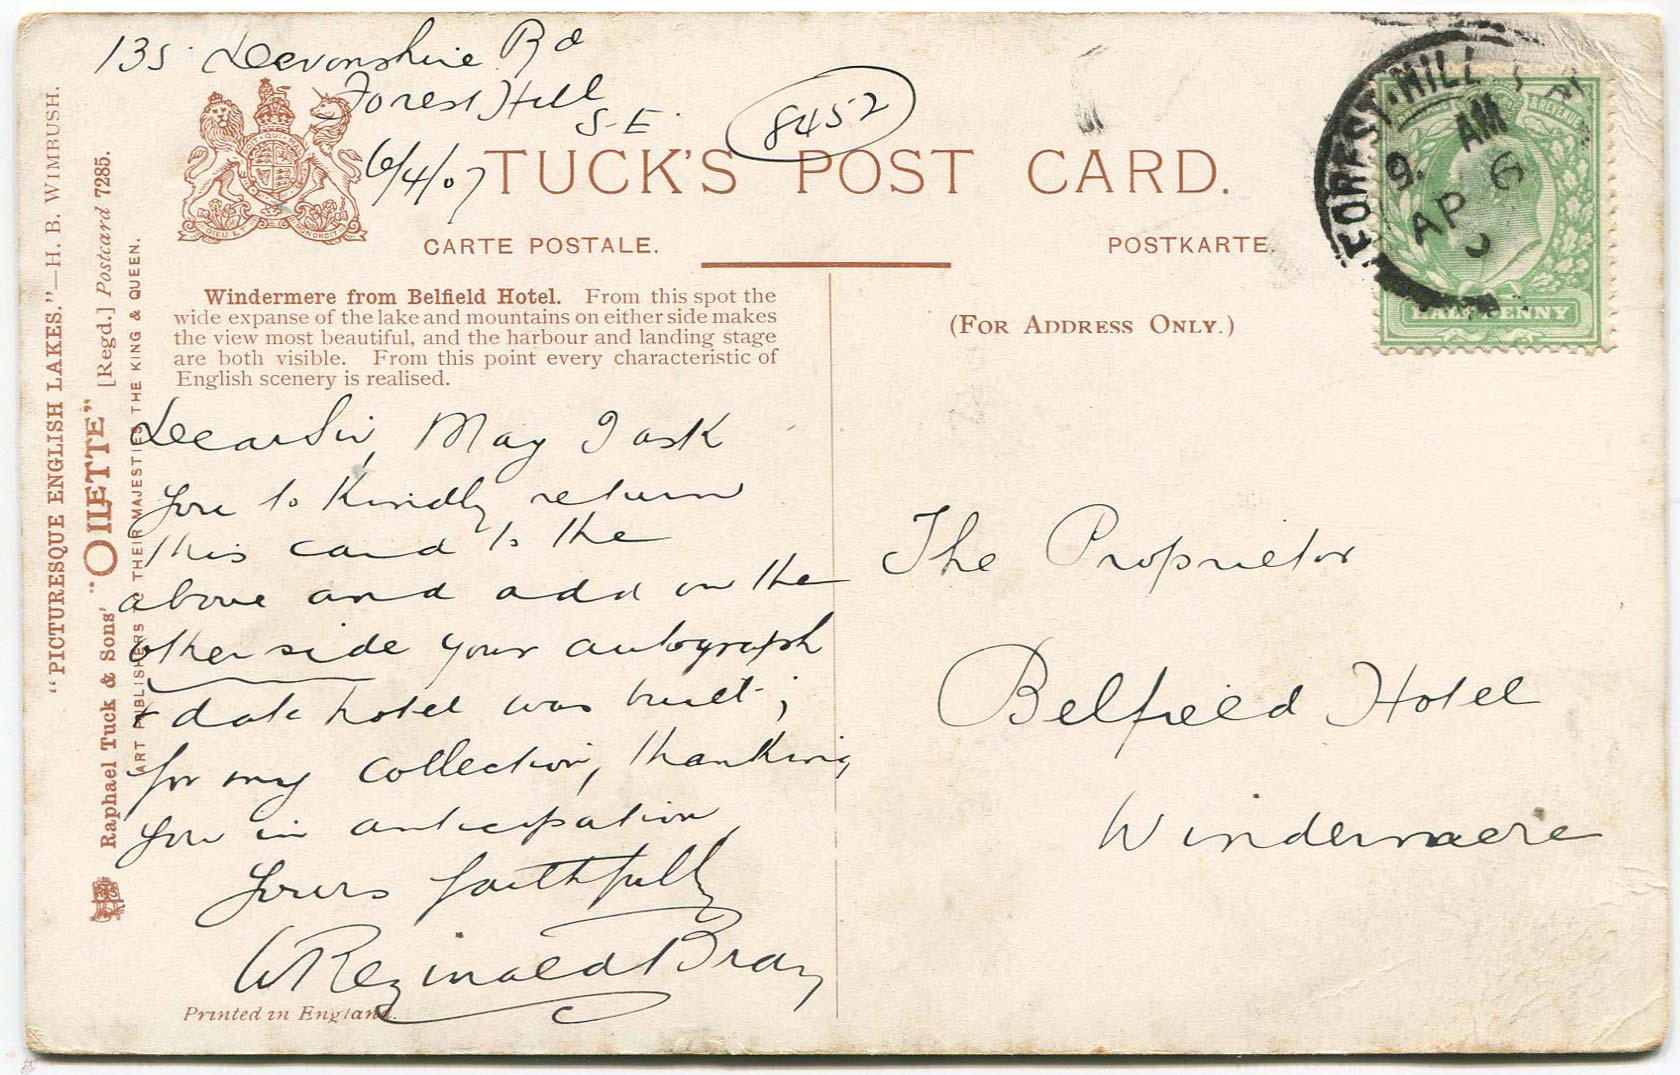 135 Devonshire Rd
Forest Hill
S.E.
6/4/07
8452
TUCK'S POST CARD.
CARTE POSTALE.
POSTKARTE.
FOREST.HILL
9. AM
AP 6
& REVENUE
HALFPENNY
"PICTURESQUE ENGLISH LAKES."—H. B. WIMBUSH.
Raphael Tuck & Sons' "OILETTE" [Regd.] Postcard 7285.
ART PUBLISHERS TO THEIR MAJESTIES THE KING & QUEEN.
Windermere from Belfield Hotel. From this spot the
wide expanse of the lake and mountains on either side makes
the view most beautiful, and the harbour and landing stage
are both visible. From this point every characteristic of
English scenery is realised.
(FOR ADDRESS ONLY.)
Dear Sir, May I ask
you to kindly return
this card to the
above and add on the
other side your autograph
& date hotel was built;
for my collection, thanking
you in anticipation,
Yours faithfully
W Reginald Bray
Printed in England.
The Proprietor
Belfield Hotel
Windermere